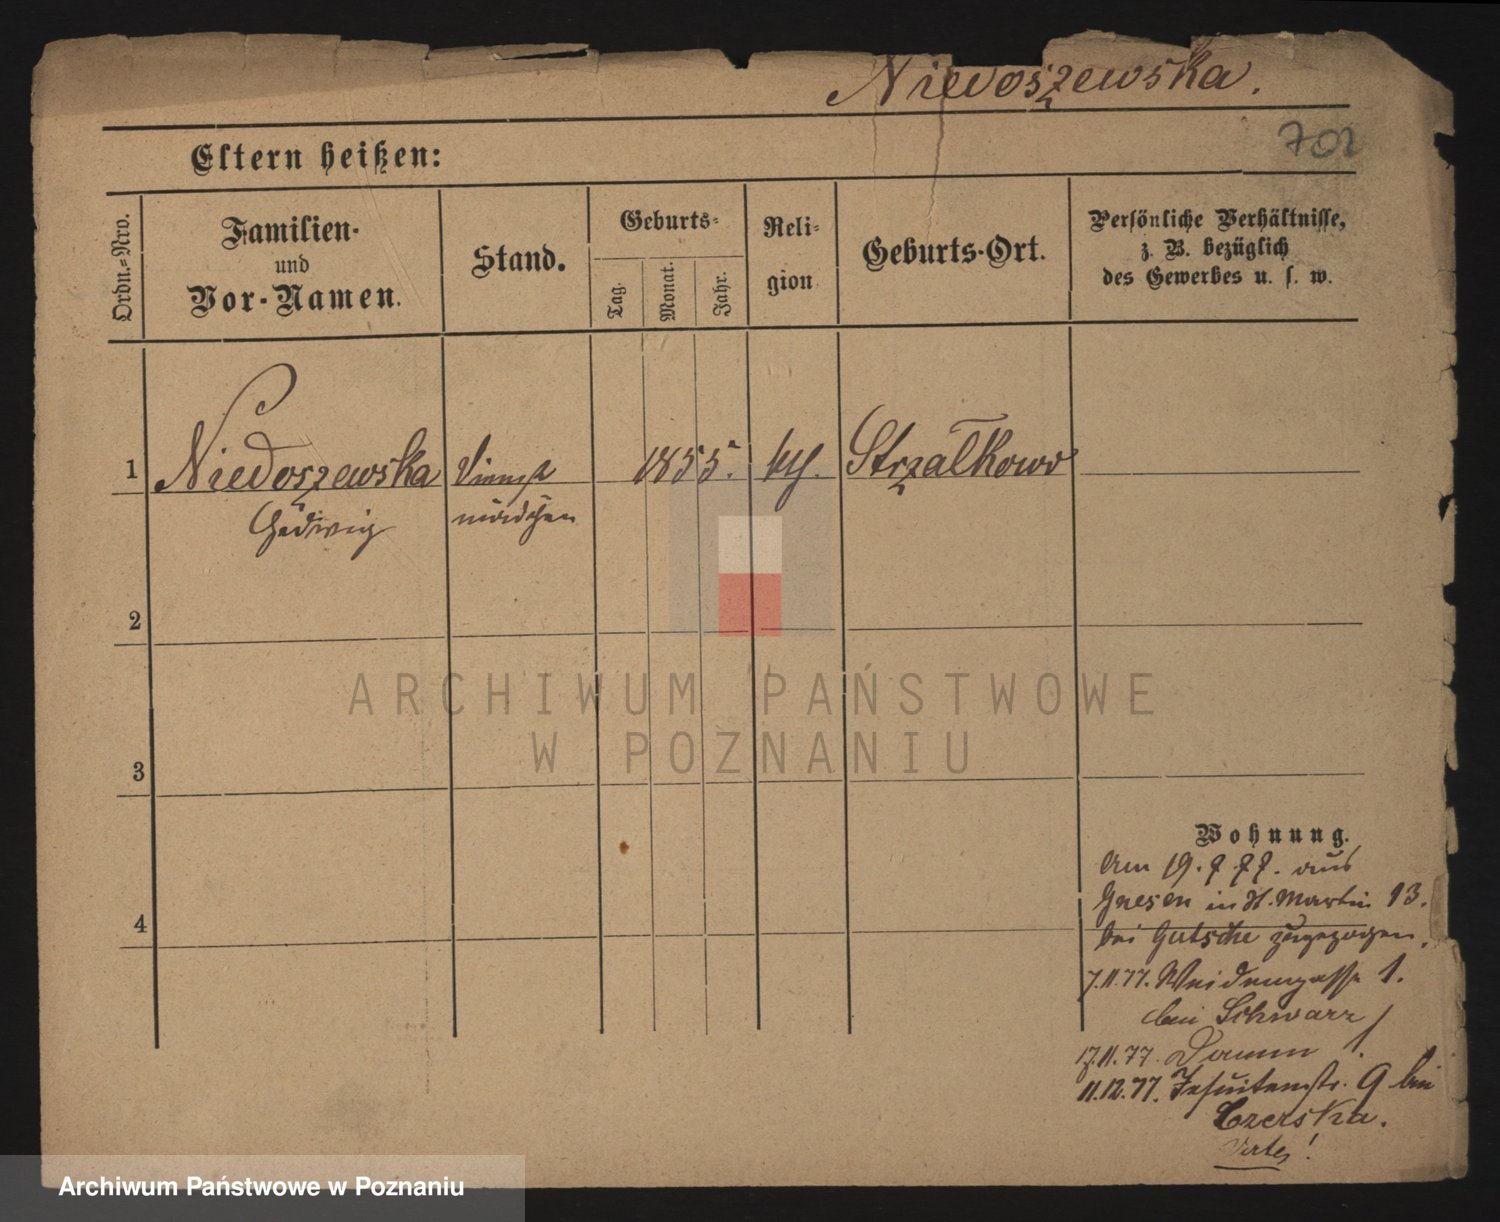 Niedoszewska.
702
Eltern heißen:
Ordn.-Nro.
Familien- und Vor-Namen.
Stand.
Geburts-
Tag.
Monat.
Jahr.
Religion
Geburts-Ort.
Persönliche Verhältnisse,
z. B. bezüglich
des Gewerbes u. s. w.
1 Niedoszewska Dienst 1855. kth. Strzałkowo
Hedwig mädchen
2
ARCHIWUM PAŃSTWOWE
W POZNANIU
3
Wohnung.
Am 19. 7. 77. aus
Gnesen in St. Martin 13.
4
bei Gutsche zugezogen.
7.11.77. Weidengasse 1.
bei Schwarz
17.11.77. Damm 1.
11.12.77. Jesuitenstr. 9 bei
Czerska.
Archiwum Państwowe w Poznaniu